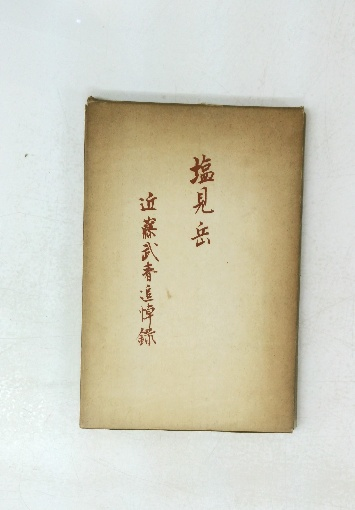 塩見岳
近藤武者追悼録